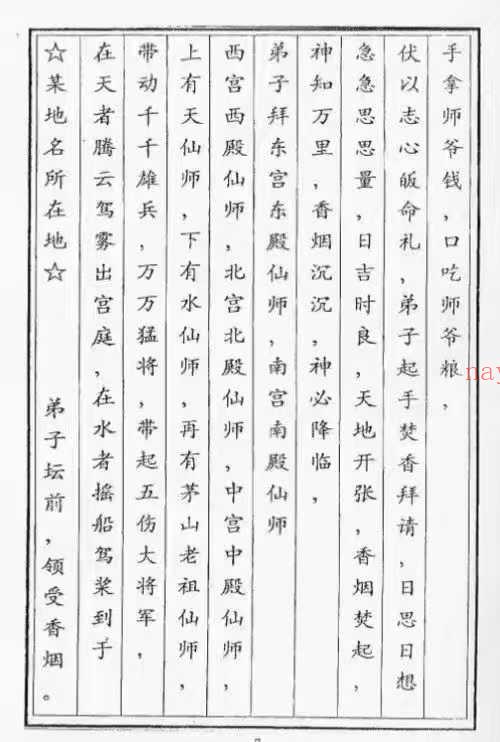 手拿师爷钱，口吃师爷粮，
伏以志心皈命礼，弟子起手焚香拜请，日思日想
急急思思量，日吉时良，天地开张，香烟焚起，
神知万里，香烟沉沉，神必降临，
弟子拜东宫东殿仙师，南宫南殿仙师
西宫西殿仙师，北宫北殿仙师，中宫中殿仙师，
上有天仙师，下有水仙师，再有茅山老祖仙师，
带动千千雄兵，万万猛将，带起五伤大将军，
在天者腾云驾雾出宫庭，在水者摇船驾桨到于
☆某地名所在地☆　弟子坛前，领受香烟。
nay